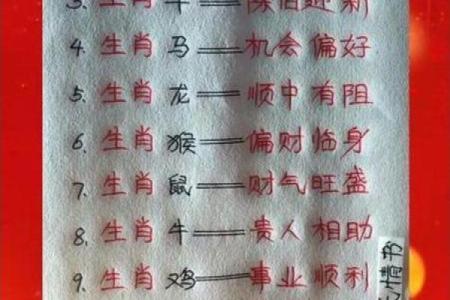 3. 生肖 牛——陈旧迎新
4. 生肖 马——机会偏好
5. 生肖 龙——顺中有阻
6. 生肖 猴——偏财临身
7. 生肖 鼠——财气旺盛
8. 生肖 牛——贵人相助
9. 生肖 鸡——事业顺利
情书